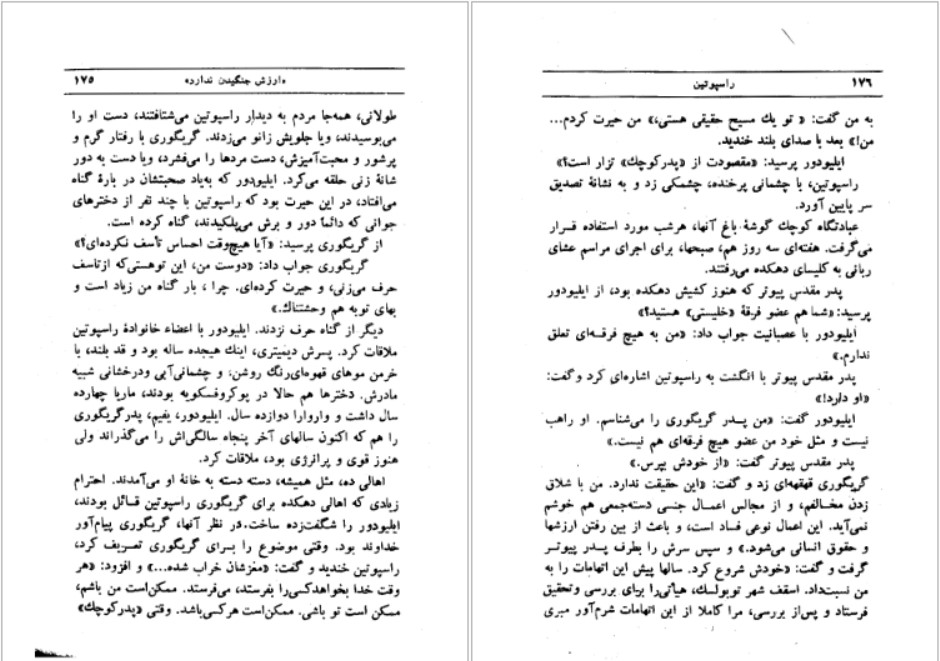 «ارزش جنگیدن ندارد» ۱۷۵
طولانی، همه‌جا مردم به دیدار راسپوتین می‌شتافتند، دست او را
می‌بوسیدند، ویا جلویش زانو می‌زدند. گریگوری با رفتار گرم و
پرشور و محبت‌آمیزش، دست مردها را می‌فشرد، ویا دست به دور
شانهٔ زنی حلقه می‌کرد. ایلیودور که به‌یاد صحبتشان در بارهٔ گناه
می‌افتاد، در این حیرت بود که راسپوتین با چند نفر از دخترهای
جوانی که دائماً دور و برش می‌پلکیدند، گناه کرده است.
از گریگوری پرسید: «آیا هیچ‌وقت احساس تأسف نکرده‌ای؟»
گریگوری جواب داد: «دوست من، این توهستی‌که ازتاسف
حرف می‌زنی، و حیرت کرده‌ای. چرا ، بار گناه من زیاد است و
بهای توبه هم وحشتناك.»
دیگر از گناه حرف نزدند. ایلیودور با اعضاء خانوادهٔ راسپوتین
ملاقات کرد. پسرش دیمیتری، اینك هیجده ساله بود و قد بلند، با
خرمن موهای قهوه‌ای‌رنگ روشن، و چشمانی‌آبی ودرخشانی شبیه
مادرش. دخترها هم حالا در پوکروفسکویه بودند، ماریا چهارده
سال داشت و واروارا دوازده سال. ایلیودور، یفیم، پدرگریگوری
را هم که اکنون سالهای آخر پنجاه سالگی‌اش را می‌گذراند ولی
هنوز قوی و پرانرژی بود، ملاقات کرد.
اهالی ده، مثل همیشه، دسته دسته به خانهٔ او می‌آمدند. احترام
زیادی که اهالی دهکده برای گریگوری راسپوتین قائل بودند،
ایلیودور را شگفت‌زده ساخت.در نظر آنها، گریگوری پیام‌آور
خداوند بود. وقتی موضوع را بسرای گریگوری تعسریف کرد،
راسپوتین خندید و گفت: «مغزشان خراب شده...» و افزود: «هر
وقت خدا بخواهدکسی‌را بفرستد، می‌فرستد. ممکن‌است من باشم،
ممکن است تو باشی. ممکن‌است هرکسی‌باشد. وقتی «پدرکوچك»
۱۷۶ راسپوتین
به من گفت: « تو یك مسیح حقیقی هستی،» من حیرت کردم...
من!» بعد با صدای بلند خندید.
ایلیودور پرسید: «مقصودت از «پدرکوچك» تزار است؟»
راسپوتین، با چشمانی پرخنده، چشمکی زد و به نشانهٔ تصدیق
سر پایین آورد.
عبادتگاه کوچك گوشهٔ باغ آنها، هرشب مورد استفاده قسرار
می‌گرفت. هفته‌ای سه روز هم، صبحها، برای اجرای مراسم عشای
ربانی به کلیسای دهکده می‌رفتند.
پدر مقدس پیوتر که هنوز کشیش دهکده بود، از ایلیودور
پرسید: «شما هم عضو فرقهٔ «خلیستی» هستید؟»
ایلیودور با عصبانیت جواب داد: «من به هیچ فرقسه‌ای تعلق
ندارم.»
پدر مقدس پیوتر با انگشت به راسپوتین اشاره‌ای کرد وگفت:
«او دارد!»
ایلیودور گفت: «من پسدر گریگوری را می‌شناسم. او راهب
نیست و مثل خود من عضو هیچ فرقه‌ای هم نیست.»
پدر مقدس پیوتر گفت: «از خودش بپرس.»
گریگوری قهقهه‌ای زد و گفت: «این حقیقت ندارد. من با شلاق
زدن مخسالفم، و از مجالس اعمسال جنسی دسته‌جمعی هم خوشم
نمی‌آید. این اعمال نوعی فساد است، و باعث از بین رفتن ارزشها
و حقوق انسانی می‌شود.» و سپس سرش را بطرف پسدر پیوتسر
گرفت و گفت: «خودش شروع کرد. سالها پیش این اتهامات را به
من نسبت‌داد. اسقف شهر توبولسك، هیأتی‌را برای بررسی وتحقیق
فرستاد و پس‌از بررسی، مرا کاملا از این اتهامات شرم‌آور مبری